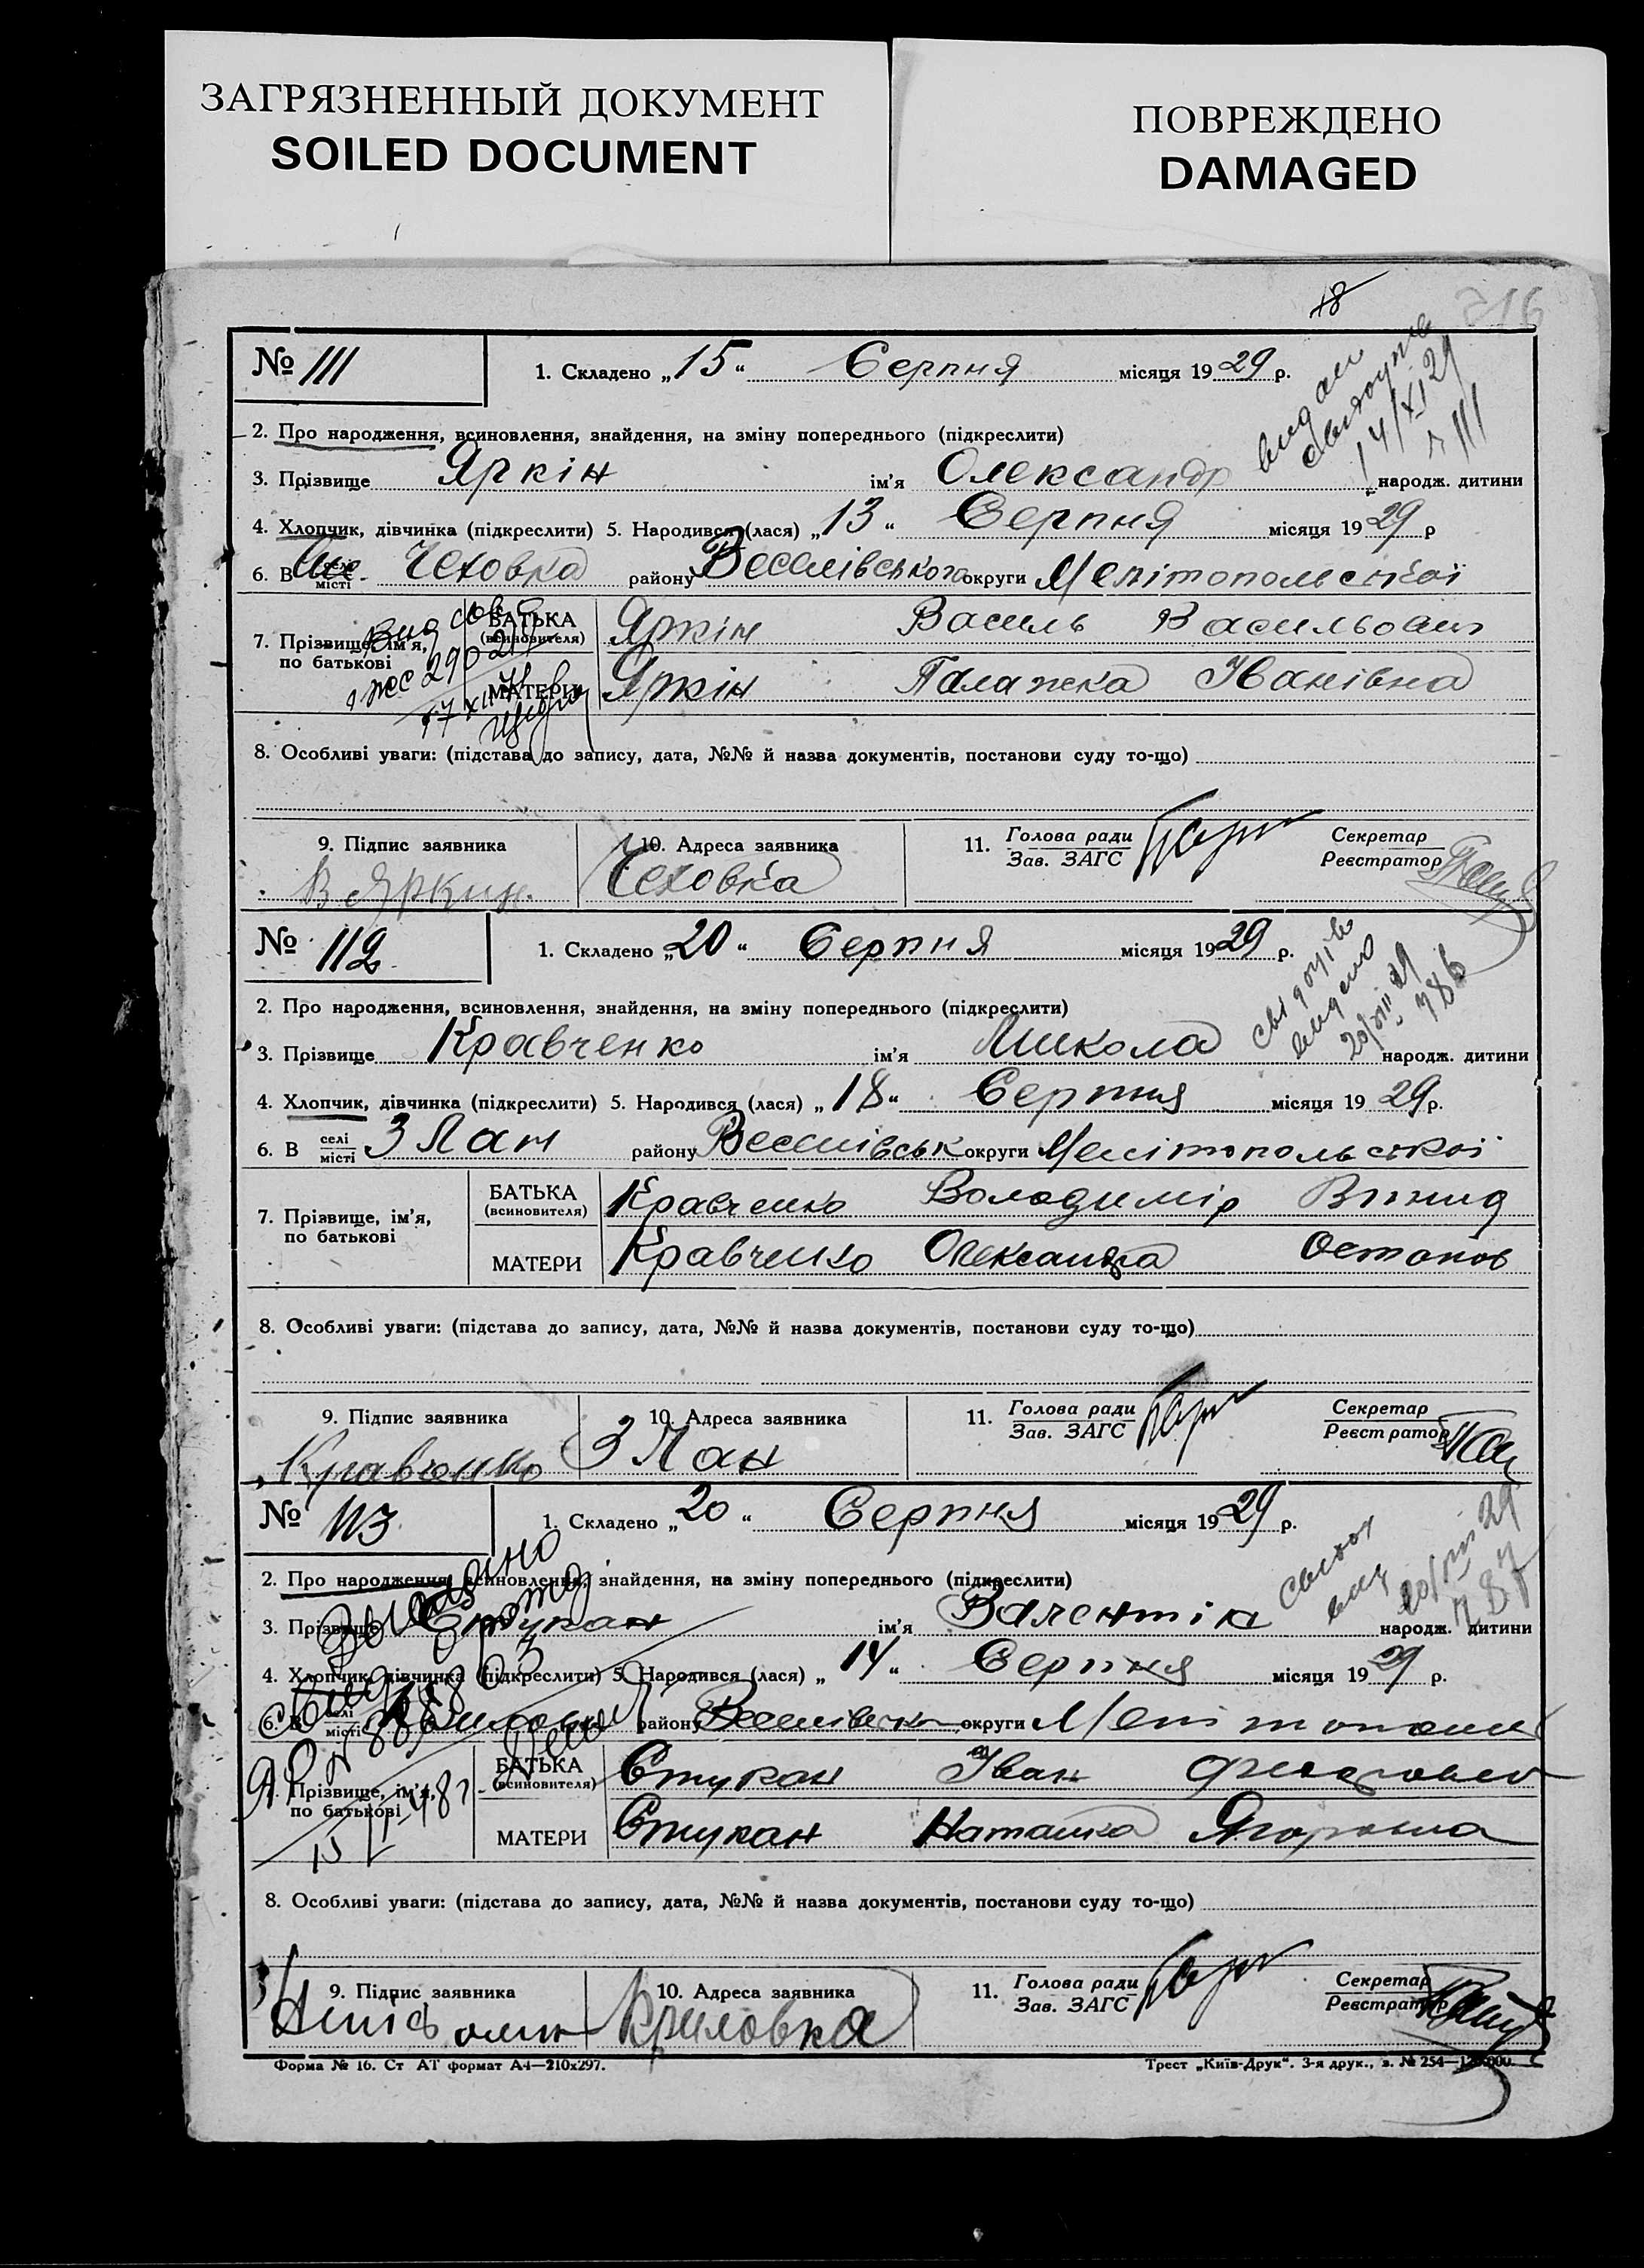 ЗАГРЯЗНЕННЫЙ ДОКУМЕНТ
SOILED DOCUMENT
ПОВРЕЖДЕНО
DAMAGED
18
№ 111
1. Складено „15“ Серпня місяця 1929 р.
14/XI 29
111
2. Про народження, всиновлення, знайдення, на зміну попереднього (підкреслити)
3. Прізвище Яркін ім'я Олександр народж. дитини
4. Хлопчик, дівчинка (підкреслити) 5. Народився (лася) „13“ Серпня місяця 1929 р
6. В селі місті Чеховка району Веселівського округи Мелітопольської
7. Прізвище, ім'я, по батькові
БАТЬКА (всиновителя) Яркін Василь Васильович
МАТЕРИ Яркін Палажка Іванівна
8. Особливі уваги: (підстава до запису, дата, №№ й назва документів, постанови суду то-що)
9. Підпис заявника
В Яркин.
10. Адреса заявника
Чеховка
11. Голова ради
Зав. ЗАГС
Секретар
Реєстратор
№ 112
1. Складено „20“ Серпня місяця 1929 р.
свідоцтво
видано
20/VIII 29
786
2. Про народження, всиновлення, знайдення, на зміну попереднього (підкреслити)
3. Прізвище Кравченко ім'я Микола народж. дитини
4. Хлопчик, дівчинка (підкреслити) 5. Народився (лася) „18“ Серпня місяця 1929 р.
6. В селі місті 3 Лан району Веселівськ округи Мелітопольської
7. Прізвище, ім'я, по батькові
БАТЬКА (всиновителя) Кравченко Володимір
МАТЕРИ Кравченко Олександра Остапов
8. Особливі уваги: (підстава до запису, дата, №№ й назва документів, постанови суду то-що)
9. Підпис заявника
Кравченко
10. Адреса заявника
3 Лан
11. Голова ради
Зав. ЗАГС
Секретар
Реєстратор
№ 113
1. Складено „20“ Серпня місяця 1929 р.
20/VIII 29
787
2. Про народження, всиновлення, знайдення, на зміну попереднього (підкреслити)
3. Прізвище Стукан ім'я Валентін народж. дитини
4. Хлопчик, дівчинка (підкреслити) 5. Народився (лася) „14“ Серпня місяця 1929 р.
6. В селі місті району Веселівськ округи
7. Прізвище, ім'я, по батькові
БАТЬКА (всиновителя) Стукан Іван
МАТЕРИ Стукан Наташка
8. Особливі уваги: (підстава до запису, дата, №№ й назва документів, постанови суду то-що)
9. Підпис заявника
10. Адреса заявника
Криловка
11. Голова ради
Зав. ЗАГС
Секретар
Реєстратор
Форма № 16. Ст АТ формат А4—210х297.
Трест „Київ-Друк“. 3-я друк., з. № 254—